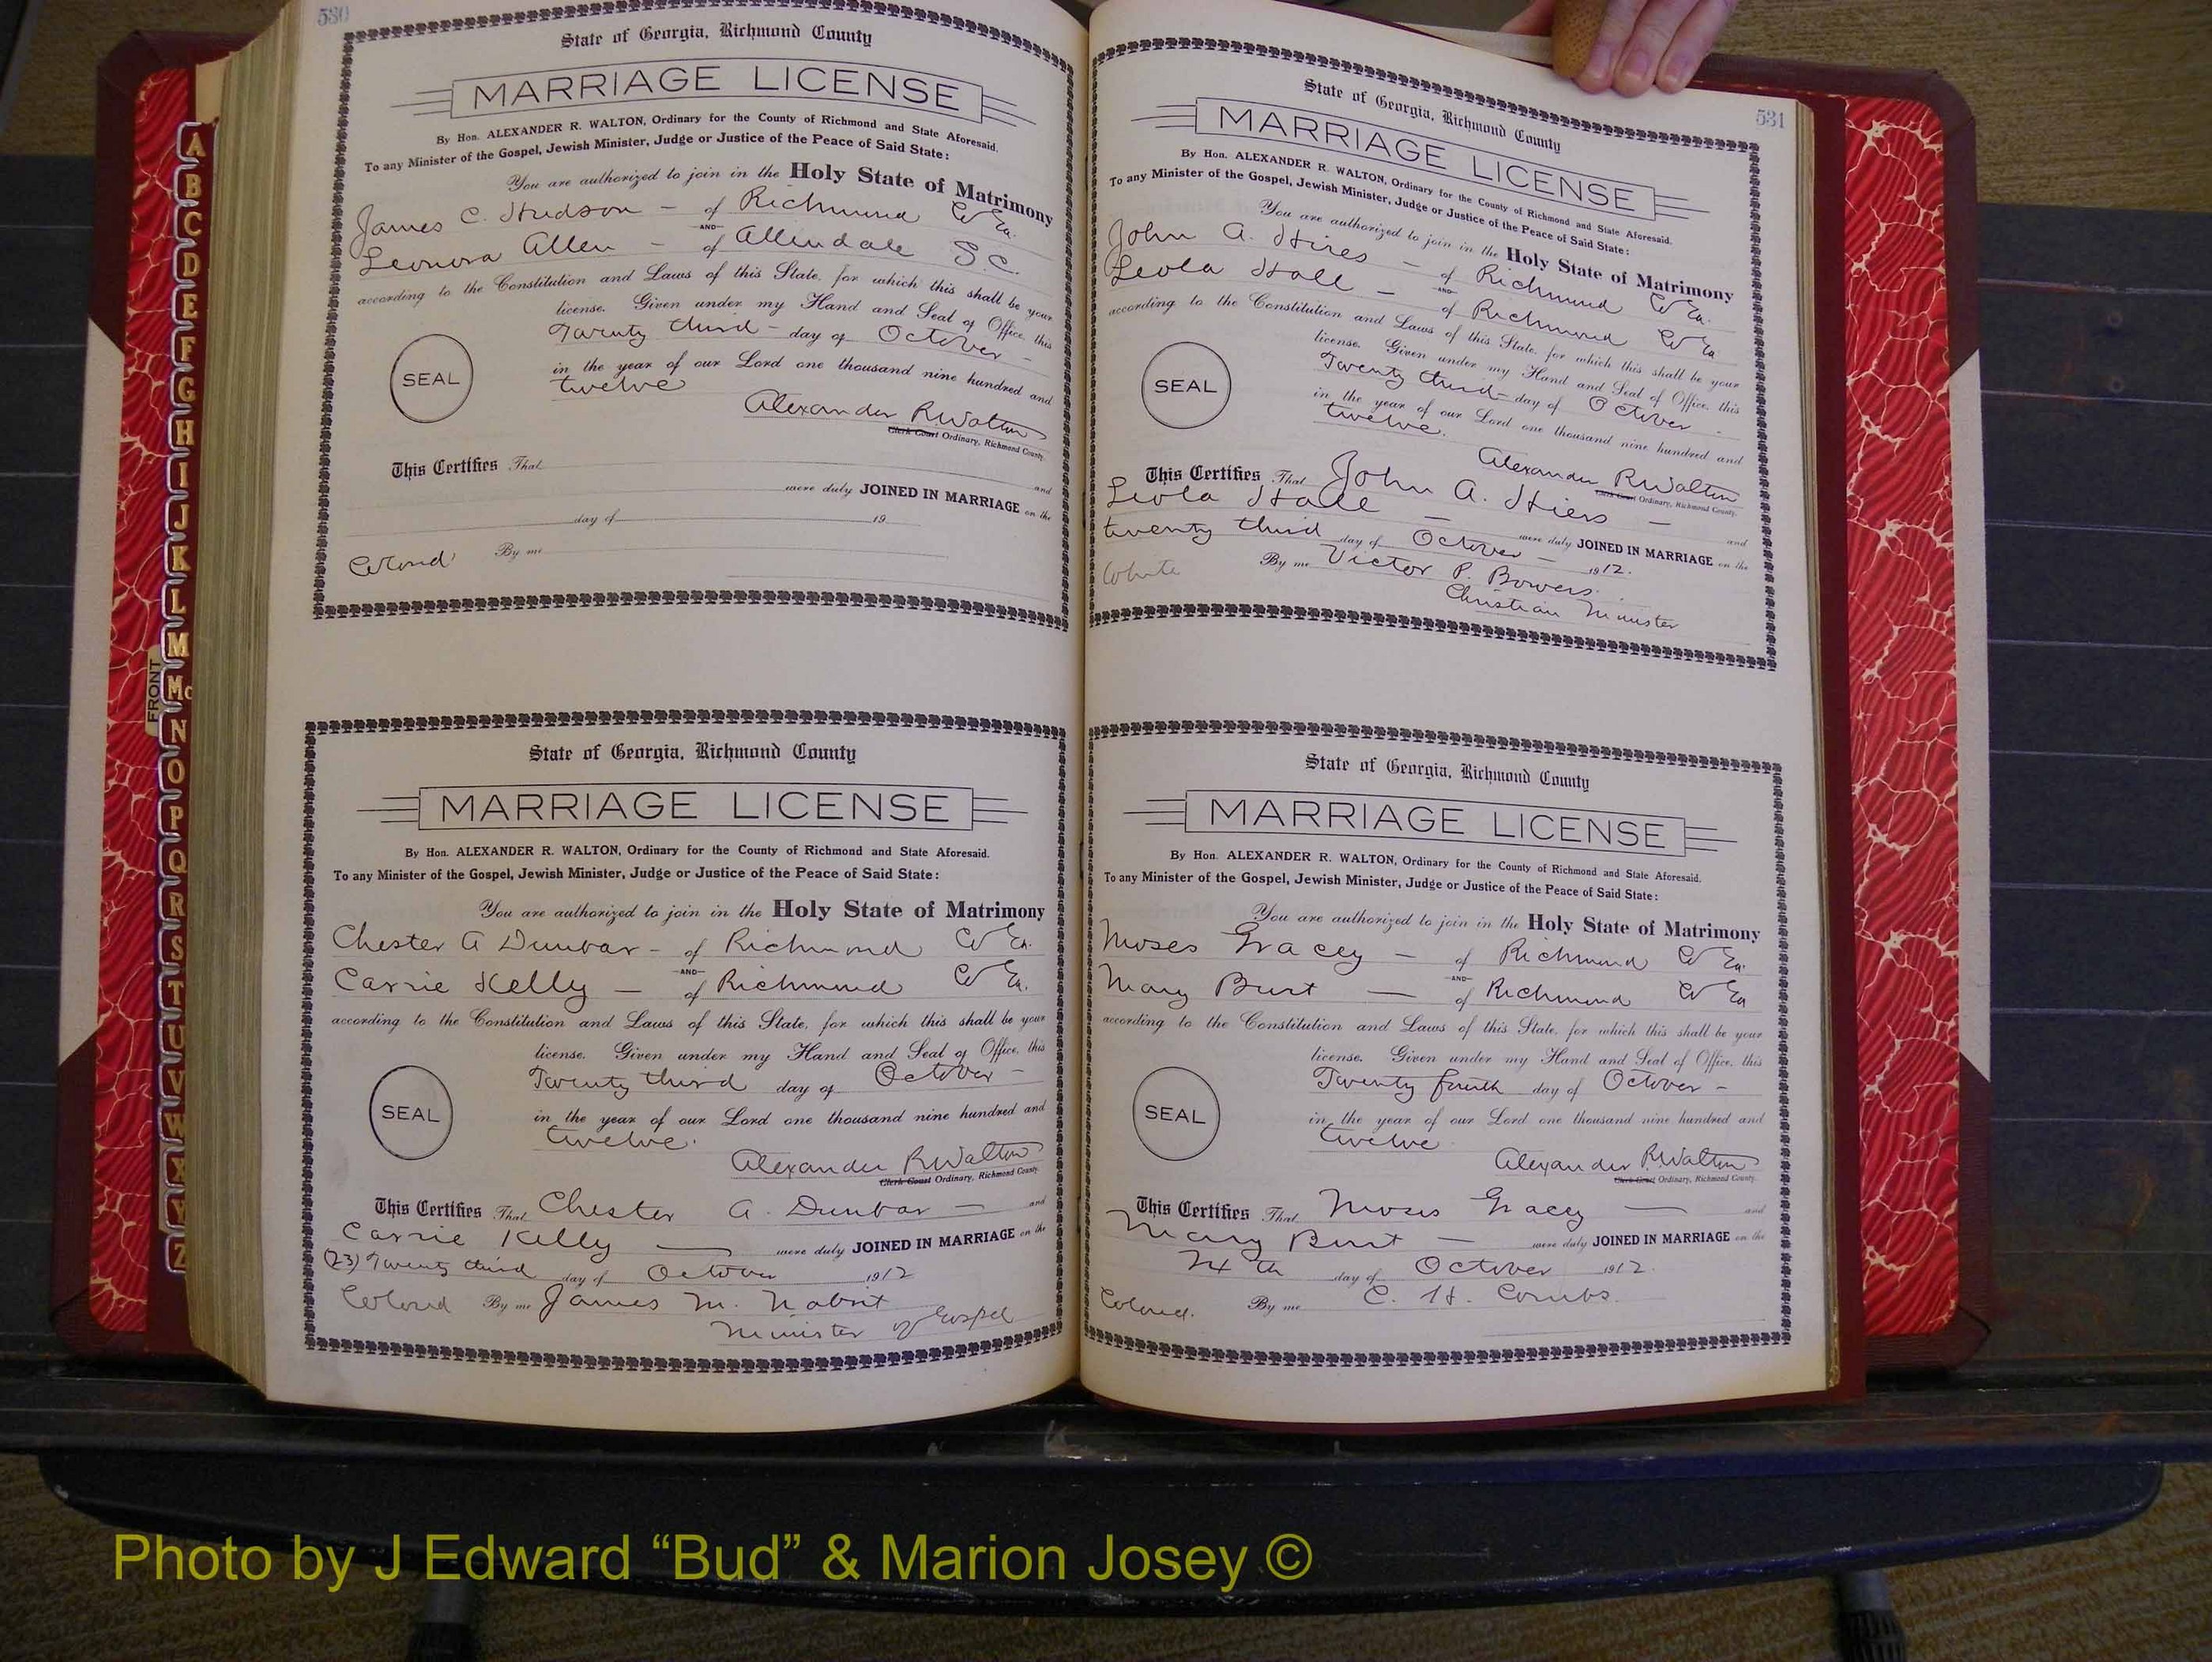 530
State of Georgia, Richmond County
MARRIAGE LICENSE
By Hon. ALEXANDER R. WALTON, Ordinary for the County of Richmond and State Aforesaid.
To any Minister of the Gospel, Jewish Minister, Judge or Justice of the Peace of Said State:
You are authorized to join in the Holy State of Matrimony
James C. Hudson - of Richmond Co Ga.
AND
Leonora Allen - of Allendale S.C.
according to the Constitution and Laws of this State, for which this shall be your
license. Given under my Hand and Seal of Office, this
Twenty third - day of October -
in the year of our Lord one thousand nine hundred and
twelve
SEAL
Alexander R. Walton
Clerk Court Ordinary, Richmond County.
This Certifies That and
were duly JOINED IN MARRIAGE on the
day of 19
Colored By me
State of Georgia, Richmond County
MARRIAGE LICENSE
By Hon. ALEXANDER R. WALTON, Ordinary for the County of Richmond and State Aforesaid.
To any Minister of the Gospel, Jewish Minister, Judge or Justice of the Peace of Said State:
You are authorized to join in the Holy State of Matrimony
Chester A Dunbar - of Richmond Co Ga.
AND
Carrie Kelly - of Richmond Co Ga.
according to the Constitution and Laws of this State, for which this shall be your
license. Given under my Hand and Seal of Office, this
Twenty third day of October -
in the year of our Lord one thousand nine hundred and
twelve.
SEAL
Alexander R. Walton
Clerk Court Ordinary, Richmond County.
This Certifies That Chester A. Dunbar - and
Carrie Kelly - were duly JOINED IN MARRIAGE on the
(23) Twenty third day of October 1912
Colored By me James M. Nabrit
Minister of Gospel
531
State of Georgia, Richmond County
MARRIAGE LICENSE
By Hon. ALEXANDER R. WALTON, Ordinary for the County of Richmond and State Aforesaid.
To any Minister of the Gospel, Jewish Minister, Judge or Justice of the Peace of Said State:
You are authorized to join in the Holy State of Matrimony
John A. Hires - of Richmond Co Ga.
AND
Leola Hall - of Richmond Co Ga
according to the Constitution and Laws of this State, for which this shall be your
license. Given under my Hand and Seal of Office, this
Twenty third - day of October -
in the year of our Lord one thousand nine hundred and
twelve.
SEAL
Alexander R. Walton
Clerk Court Ordinary, Richmond County.
This Certifies That John A. Hiers -
Leola Hall - and
were duly JOINED IN MARRIAGE on the
twenty third day of October - 1912.
White By me Victor P. Bowers.
Christian Minister
State of Georgia, Richmond County
MARRIAGE LICENSE
By Hon. ALEXANDER R. WALTON, Ordinary for the County of Richmond and State Aforesaid.
To any Minister of the Gospel, Jewish Minister, Judge or Justice of the Peace of Said State:
You are authorized to join in the Holy State of Matrimony
Moses Gracey - of Richmond Co Ga.
AND
Mary Burt - of Richmond Co Ga
according to the Constitution and Laws of this State, for which this shall be your
license. Given under my Hand and Seal of Office, this
Twenty fourth day of October -
in the year of our Lord one thousand nine hundred and
twelve
SEAL
Alexander R. Walton
Clerk Court Ordinary, Richmond County.
This Certifies That Moses Gracey - and
Mary Burt - were duly JOINED IN MARRIAGE on the
24 th day of October 1912.
Colored. By me C. H. Combs.
FRONT
A
B
C
D
E
F
G
H
I
J
K
L
M
Mc
N
O
P
Q
R
S
T
U
V
W
X
Y
Z
Photo by J Edward “Bud” & Marion Josey ©